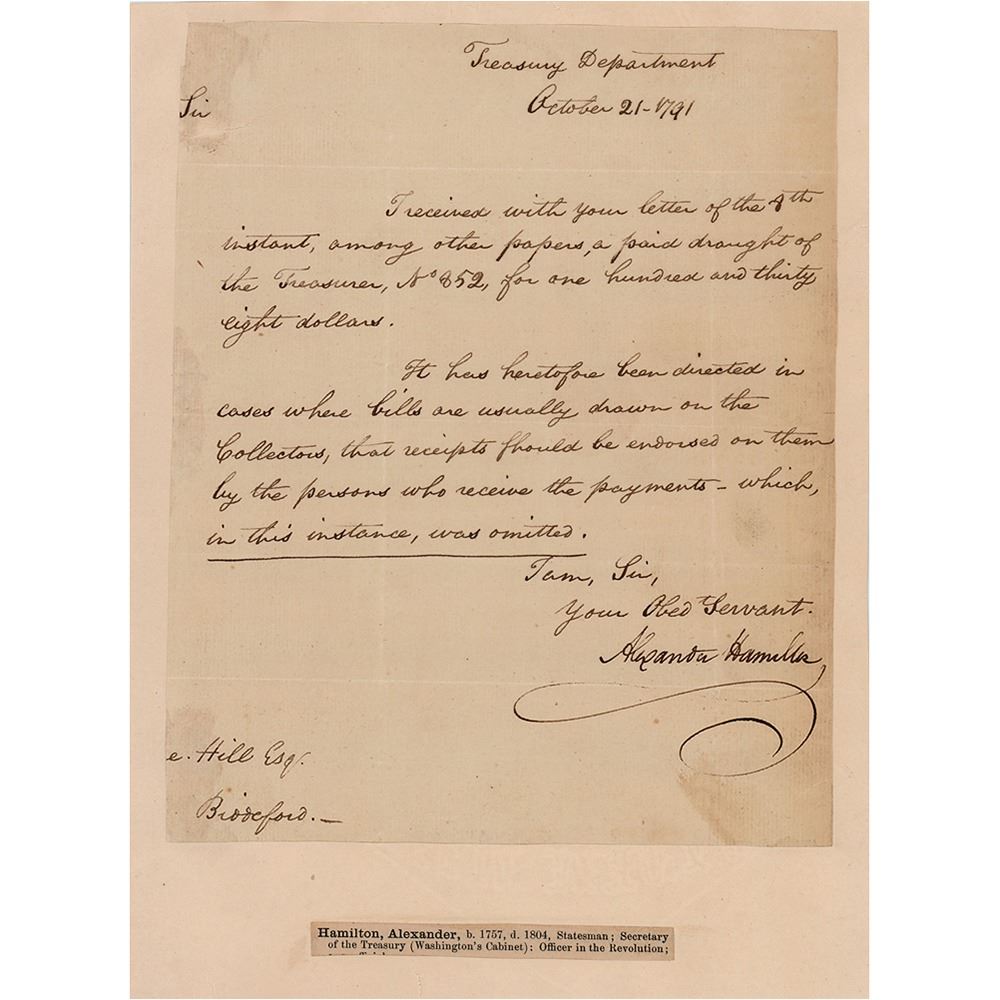 Treasury Department
October 21-1791
Sir
I received with your letter of the 8th
instant, among other papers, a paid draught of
the Treasurer, No 852, for one hundred and thirty
eight dollars.
It has heretofore been directed in
cases where bills are usually drawn on the
Collectors, that receipts should be endorsed on them
by the persons who receive the payments – which,
in this instance, was omitted.
I am, Sir,
Your Obedt Servant.
Alexander Hamilton
e. Hill Esqr.
Biddeford. —
Hamilton, Alexander, b. 1757, d. 1804, Statesman; Secretary
of the Treasury (Washington's Cabinet); Officer in the Revolution;